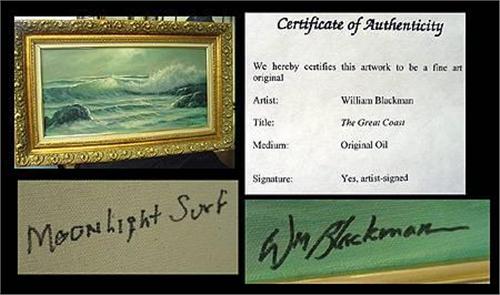 Certificate of Authenticity
We hereby certifies this artwork to be a fine art
original
Artist: William Blackman
Title: The Great Coast
Medium: Original Oil
Signature: Yes, artist-signed
Moonlight Surf
Wm Blackman